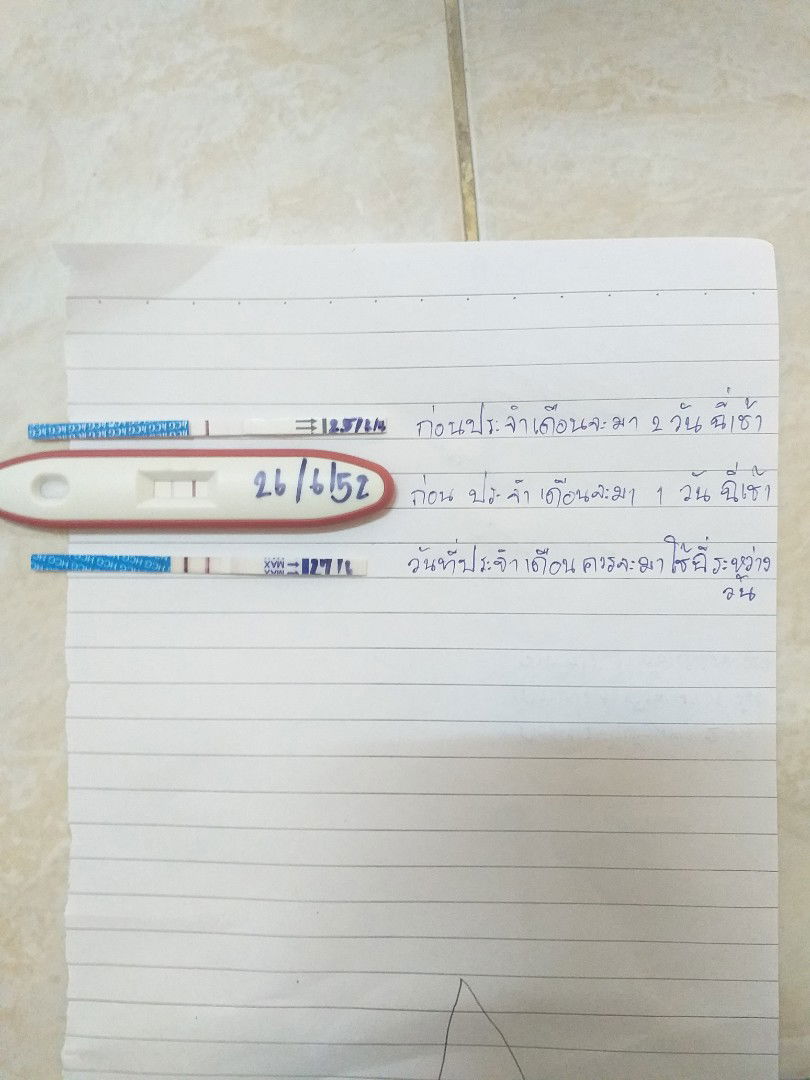 HCG HCG HCG HCG HCG HCG
ก่อนประจำเดือนจะมา 2 วัน ฉี่เช้า
26/6/52
ก่อน ประจำเดือนจะมา 1 วัน ฉี่เช้า
HCG HCG HCG HCG HCG
MAX MAX
วันที่ประจำเดือนควรจะมา ใช้ฉี่ระหว่าง
วัน